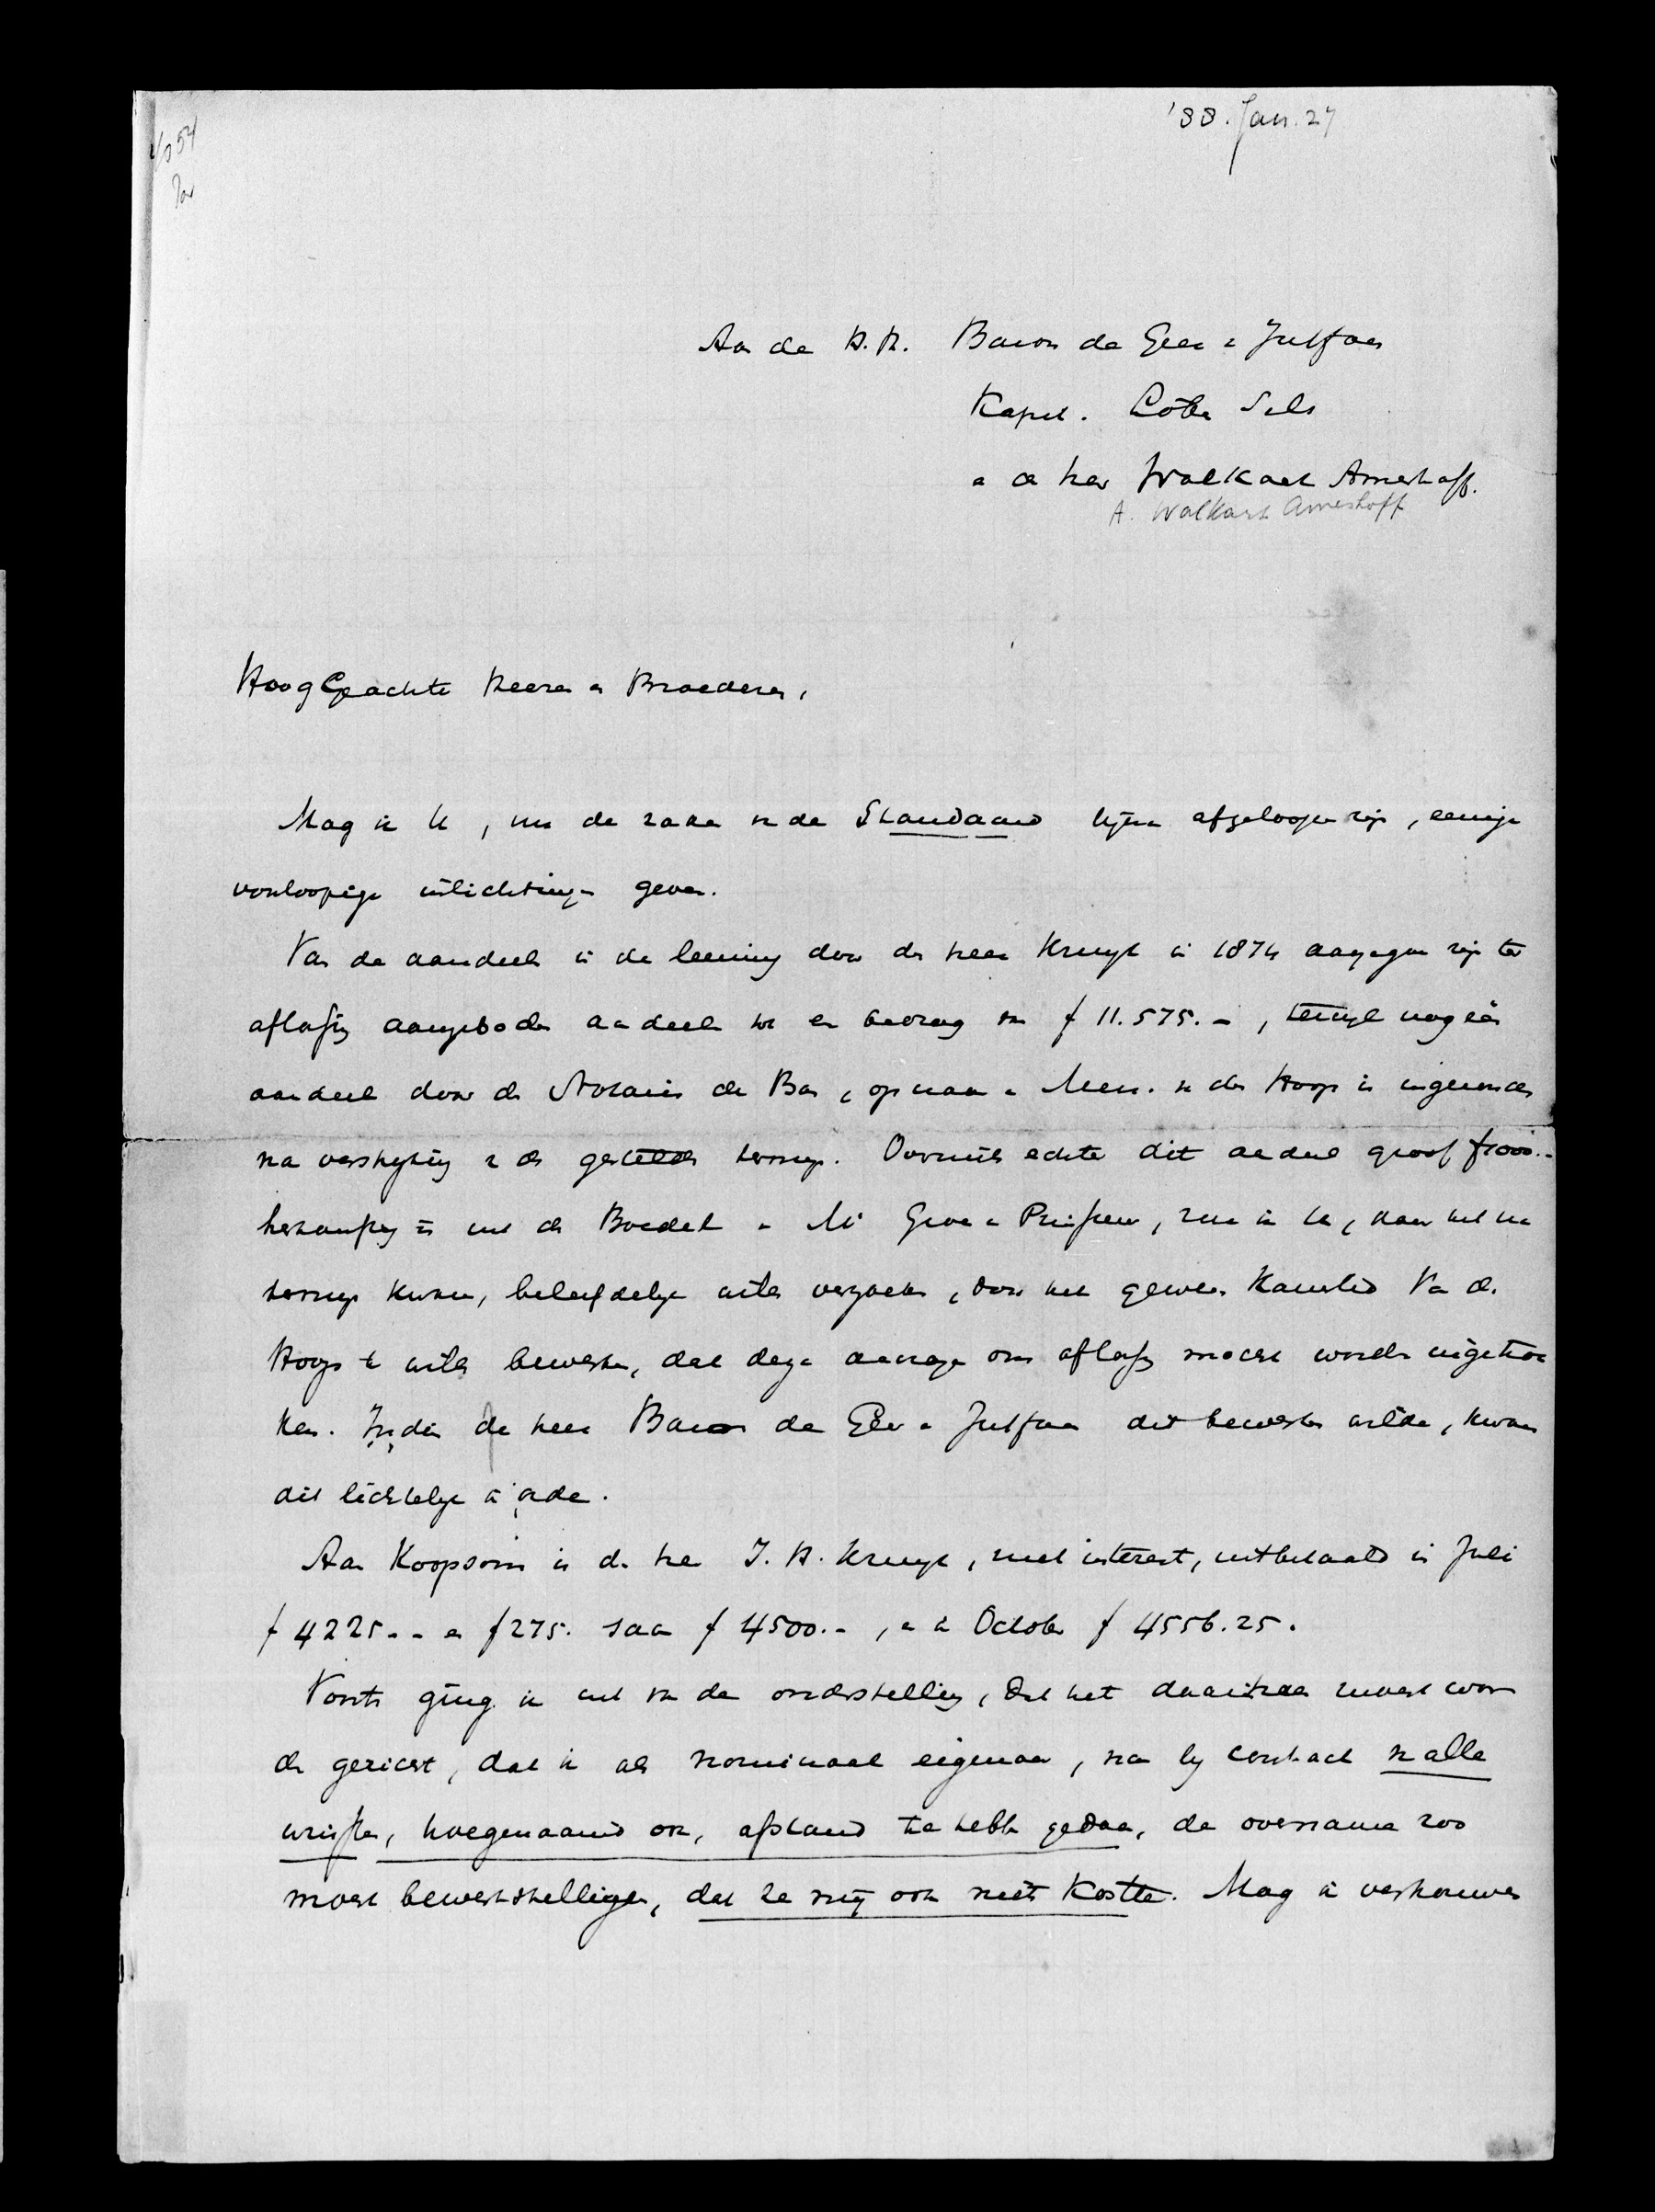 '88. Jan. 27
Aan de H.H. Baron de Geer v Jutfaas
Kapit. Lotsy Sels
en de heer Walkart Ameshoff.
A. Walkart Ameshoff
HoogGeachte Heeren en Broeders,
Mag ik U, nu de zaken v de Standaard bijna afgeloopen zijn, eenige
voorloopige inlichtingen geven.
Van de aandeelen in de leening door den heer Kruyt in 1874 aangegaan zijn ter
aflossing aangeboden aandeelen tot een bedrag van f 11.575.-, terwijl nog één
aandeel door den Notaris de Bas, op naam v Mevr. v der Hoop is ingezonden
na verstrijking v den gestelden termijn. Overmits echter dit aandeel groot f 1000.-
herkomstig is uit den Boedel v Mr Groen v Prinsterer, zou ik U, daar het na
termijn kwam, beleefdelijk willen verzoeken, door het gewezen Kamerlid Van der
Hoop te willen bewerken, dat deze aanvrage om aflossing mocht worden ingetrok
ken. Indien de heer Baron de Geer v Jutfaas dit bewerken wilde, kwam
dit lichtelijk in orde.
Aan Koopsom is den heer J. H. Kruyt, met interest, uitbetaald in Juli
f 4225.- en f 275. saam f 4500.-, en in October f 4556.25.
Voorts ging ik uit van de onderstelling, dat het daarheen moest wor
den gericht, dat ik als nominaal eigenaar, na bij contract van alle
winsten, hoegenaamd ook, afstand te hebben gedaan, de overname zoo
moest bewerkstelligen, dat ze mij ook niets kostte. Mag ik vertrouwen